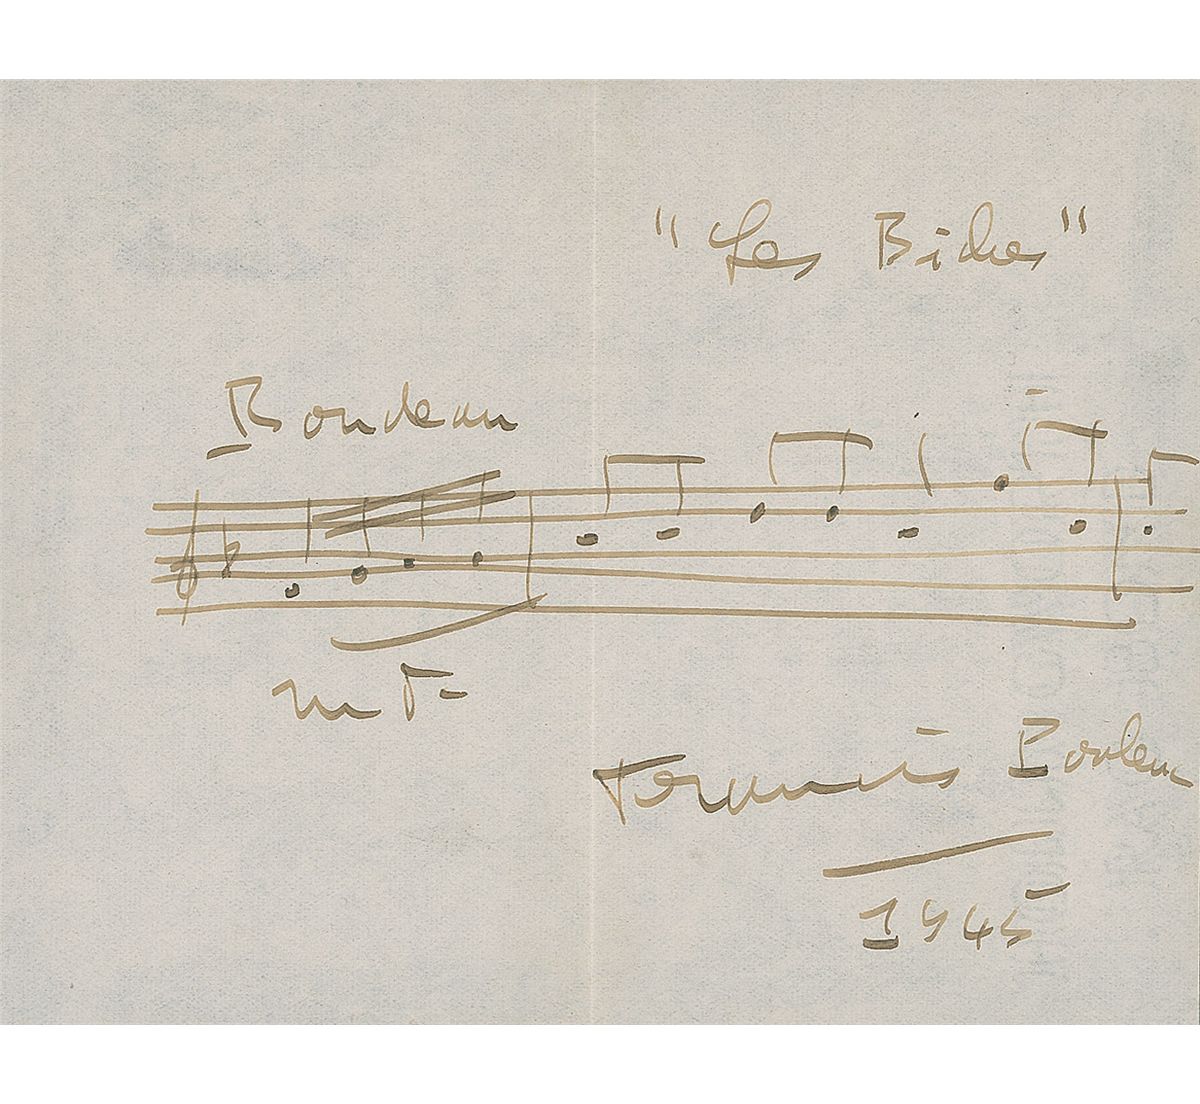 "Les Biches"
Rondeau
mf
Francis Poulenc
1945